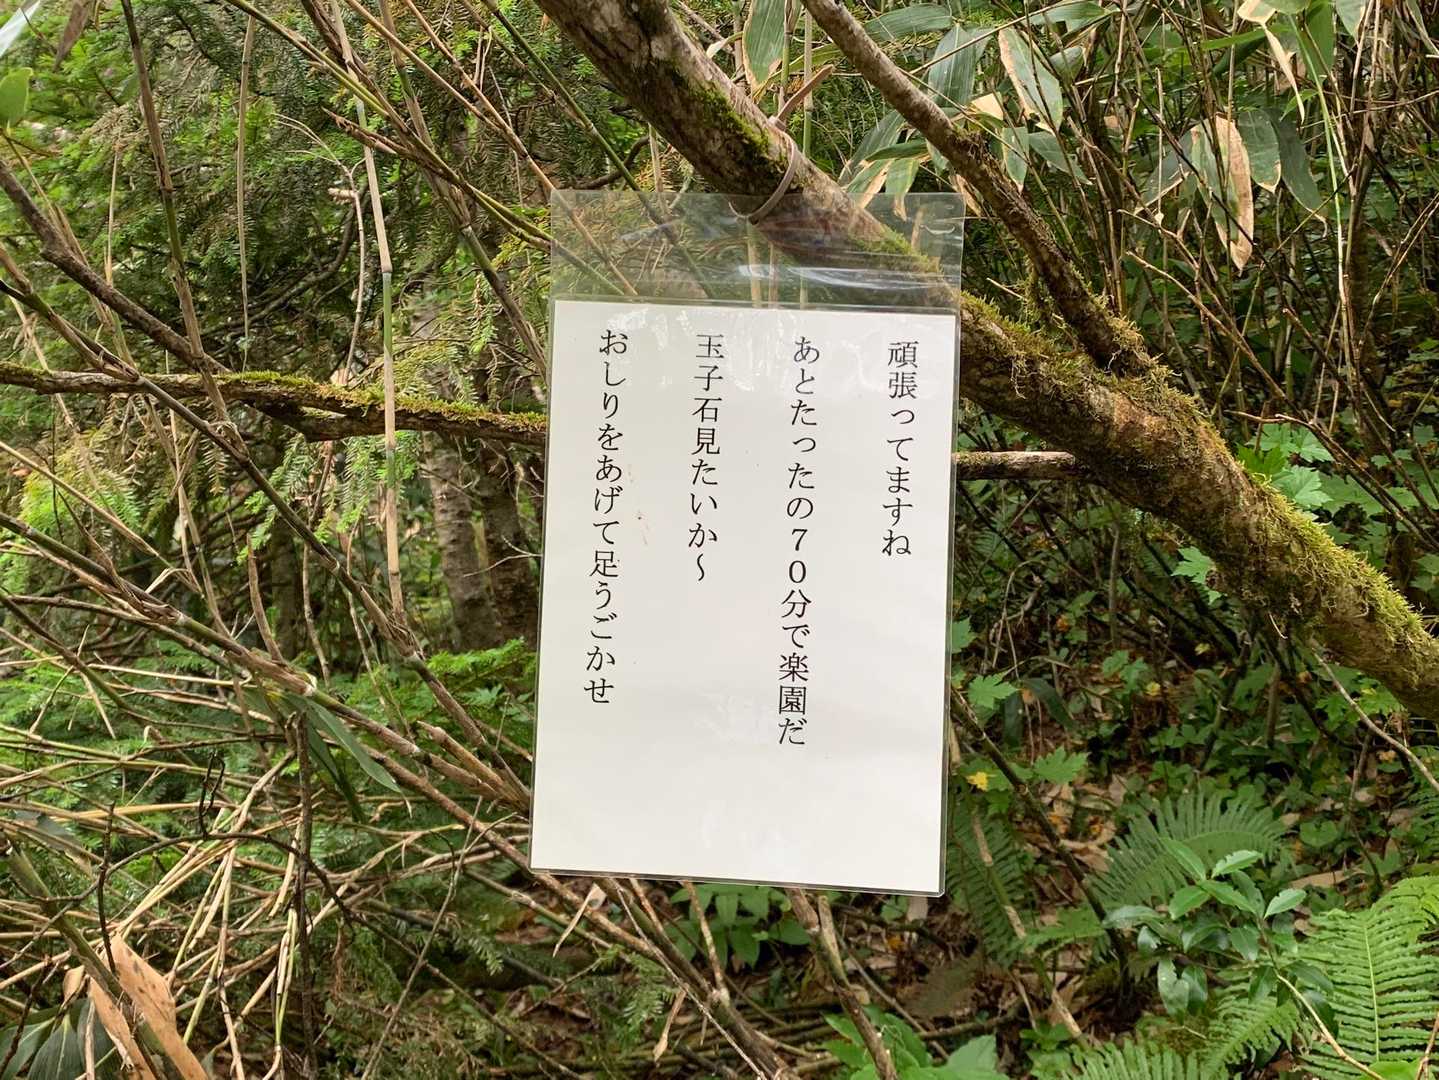 頑張ってますね
あとたったの７０分で楽園だ
玉子石見たいか～
おしりをあげて足うごかせ